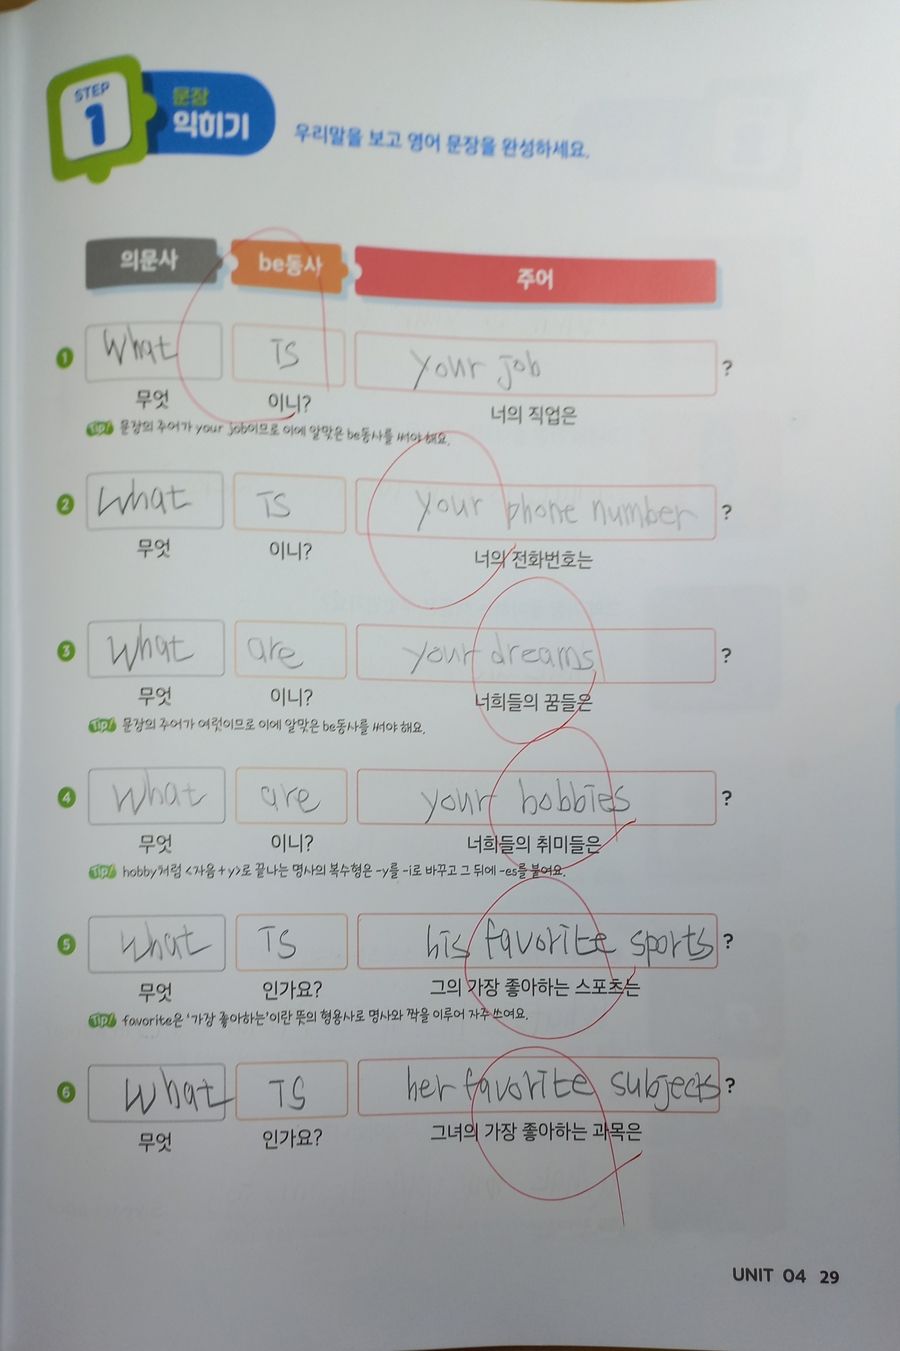 STEP 1
문장
익히기
우리말을 보고 영어 문장을 완성하세요.
의문사 be동사 주어
1 What is your job ?
무엇 이니? 너의 직업은
Tip! 문장의 주어가 your job이므로 이에 알맞은 be동사를 써야 해요.
2 What is your phone number ?
무엇 이니? 너의 전화번호는
3 What are your dreams ?
무엇 이니? 너희들의 꿈들은
Tip! 문장의 주어가 여럿이므로 이에 알맞은 be동사를 써야 해요.
4 What are your hobbies ?
무엇 이니? 너희들의 취미들은
Tip! hobby처럼 <자음+y>로 끝나는 명사의 복수형은 -y를 -i로 바꾸고 그 뒤에 -es를 붙여요.
5 What is his favorite sports ?
무엇 인가요? 그의 가장 좋아하는 스포츠는
Tip! favorite은 '가장 좋아하는'이란 뜻의 형용사로 명사와 짝을 이루어 자주 쓰여요.
6 What is her favorite subjects ?
무엇 인가요? 그녀의 가장 좋아하는 과목은
UNIT 04 29